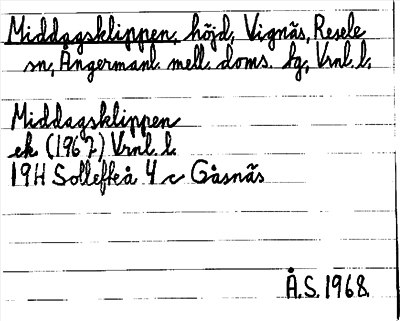 Middagsklippen, höjd, Vignäs, Resele
sn, Ångermanl. mell. doms. fg, Vrnl. l.
Middagsklippen
ek. (1967) Vrnl. l.
19H Sollefteå 4 c Gåsnäs
Å.S. 1968.